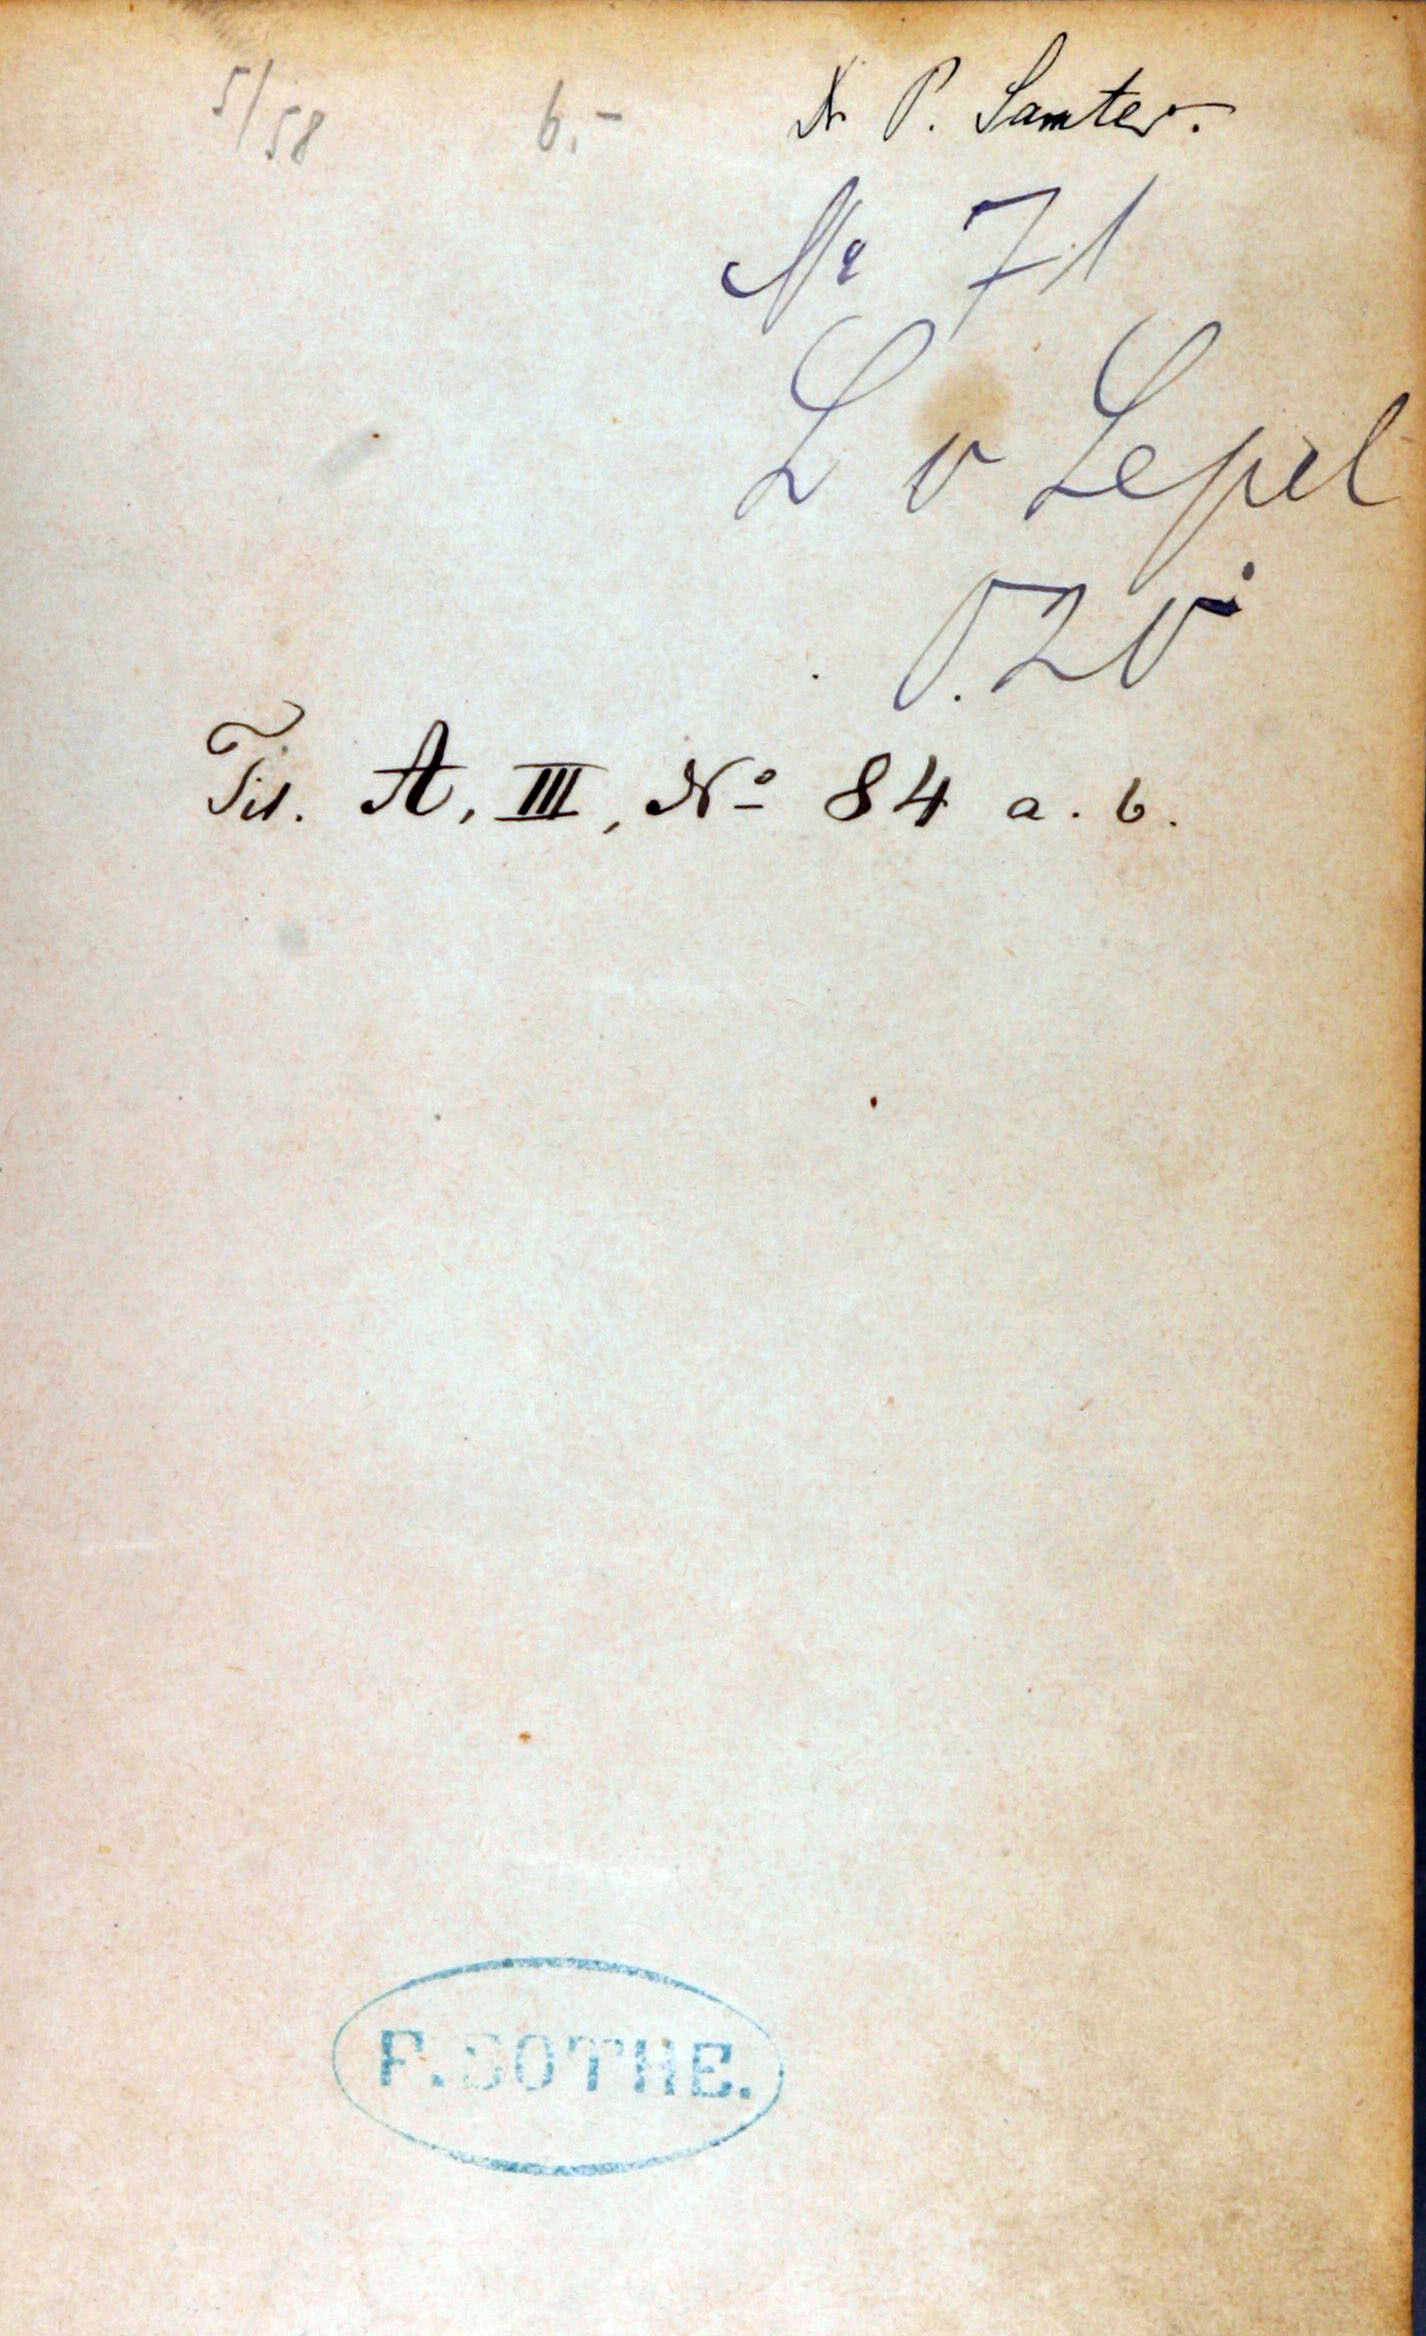 5/58 6.- Dr P. Samter.
Nr 71
L v Lepel
Tit. A, III, Nº 84 a. b.
F. BOTHE.